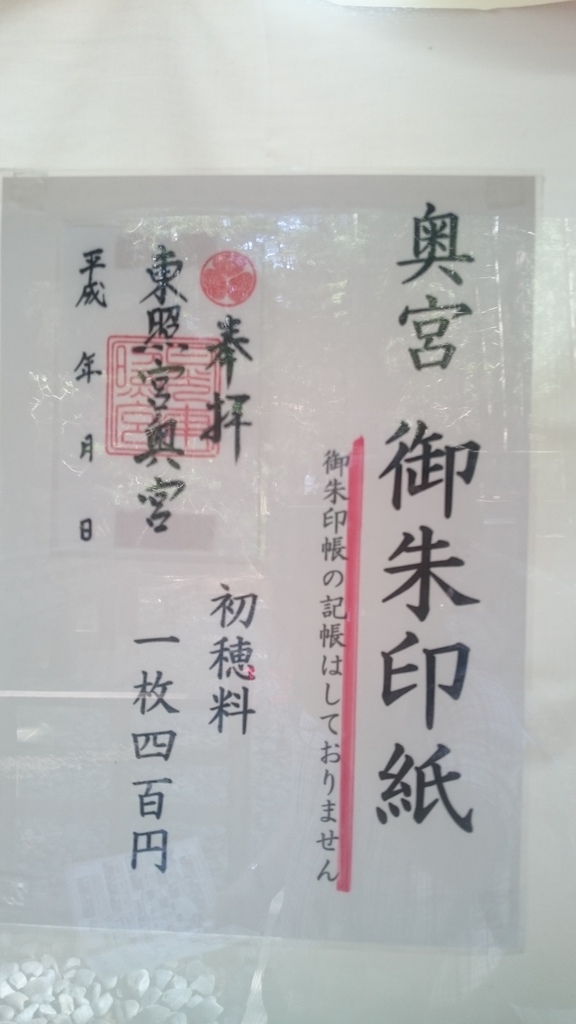 奥宮 御朱印紙
御朱印帳の記帳はしておりません
奉拝
東照宮奥宮
平成 年 月 日
初穂料
一枚四百円